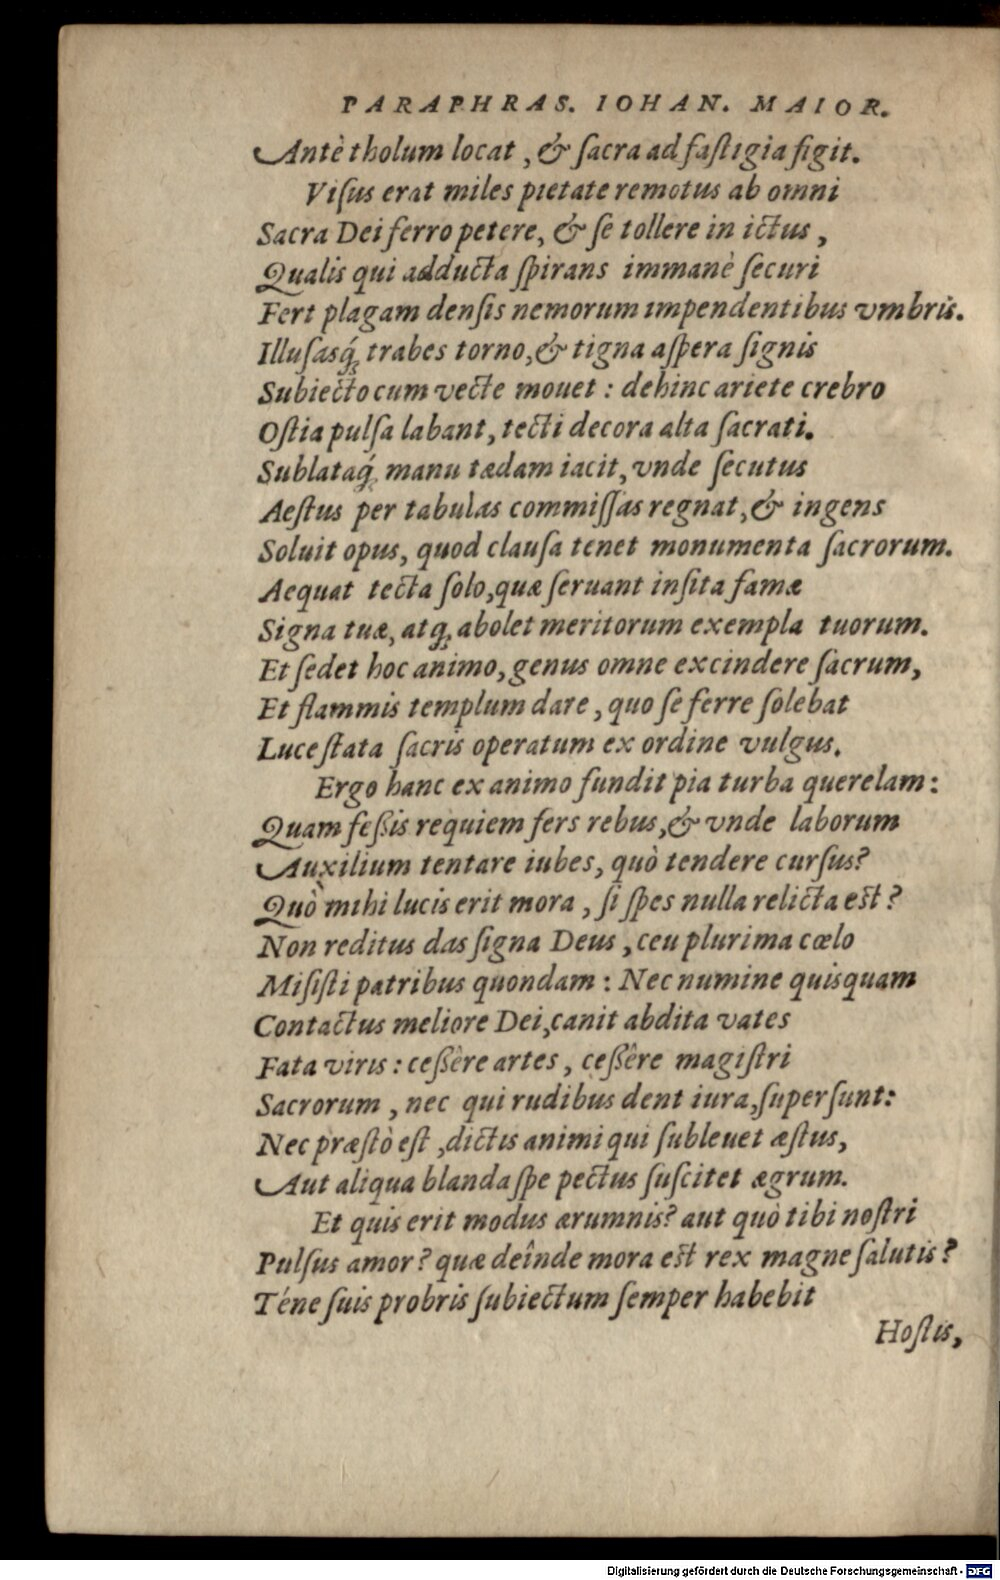 PARAPHRAS. IOHAN. MAIOR.
Antè tholum locat, & ſacra ad faſtigia figit.
Viſus erat miles pietate remotus ab omni
Sacra Dei ferro petere, & ſe tollere in ictus,
Qualis qui adducta ſpirans immanè ſecuri
Fert plagam denſis nemorum impendentibus vmbris.
Illuſasq́; trabes torno, & tigna aſpera ſignis
Subiecto cum vecte mouet: dehinc ariete crebro
Oſtia pulſa labant, tecti decora alta ſacrati.
Sublataq́; manu tædam iacit, vnde ſecutus
Aeſtus per tabulas commiſſas regnat, & ingens
Soluit opus, quod clauſa tenet monumenta ſacrorum.
Aequat tecta ſolo, quæ ſeruant inſita famæ
Signa tuæ, atq; abolet meritorum exempla tuorum.
Et ſedet hoc animo, genus omne excindere ſacrum,
Et flammis templum dare, quo ſe ferre ſolebat
Luce ſtata ſacris operatum ex ordine vulgus.
Ergo hanc ex animo fundit pia turba querelam:
Quam feßis requiem fers rebus, & vnde laborum
Auxilium tentare iubes, quò tendere curſus?
Quò mihi lucis erit mora, ſi ſpes nulla relicta eſt?
Non reditus das ſigna Deus, ceu plurima cœlo
Miſiſti patribus quondam: Nec numine quisquam
Contactus meliore Dei, canit abdita vates
Fata viris: ceßêre artes, ceßêre magiſtri
Sacrorum, nec qui rudibus dent iura, ſuperſunt:
Nec præſtò eſt, dictis animi qui ſubleuet æſtus,
Aut aliqua blanda ſpe pectus ſuſcitet ægrum.
Et quis erit modus ærumnis? aut quò tibi noſtri
Pulſus amor? quæ deînde mora eſt rex magne ſalutis?
Téne ſuis probris ſubiectum ſemper habebit
Hoſtis,
Digitalisierung gefördert durch die Deutsche Forschungsgemeinschaft - DFG